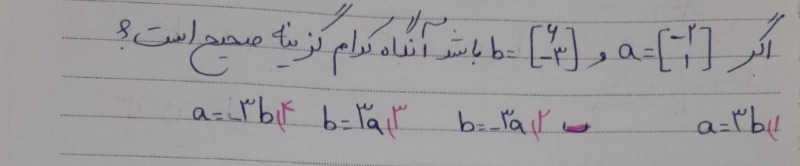 اگر a=[-۲ ۱] و b=[۶ -۳] باشد آنگاه کدام گزینه صحیح است؟
۱) a=۳b ۲) b=-۳a ۳) b=۳a ۴) a=-۳b